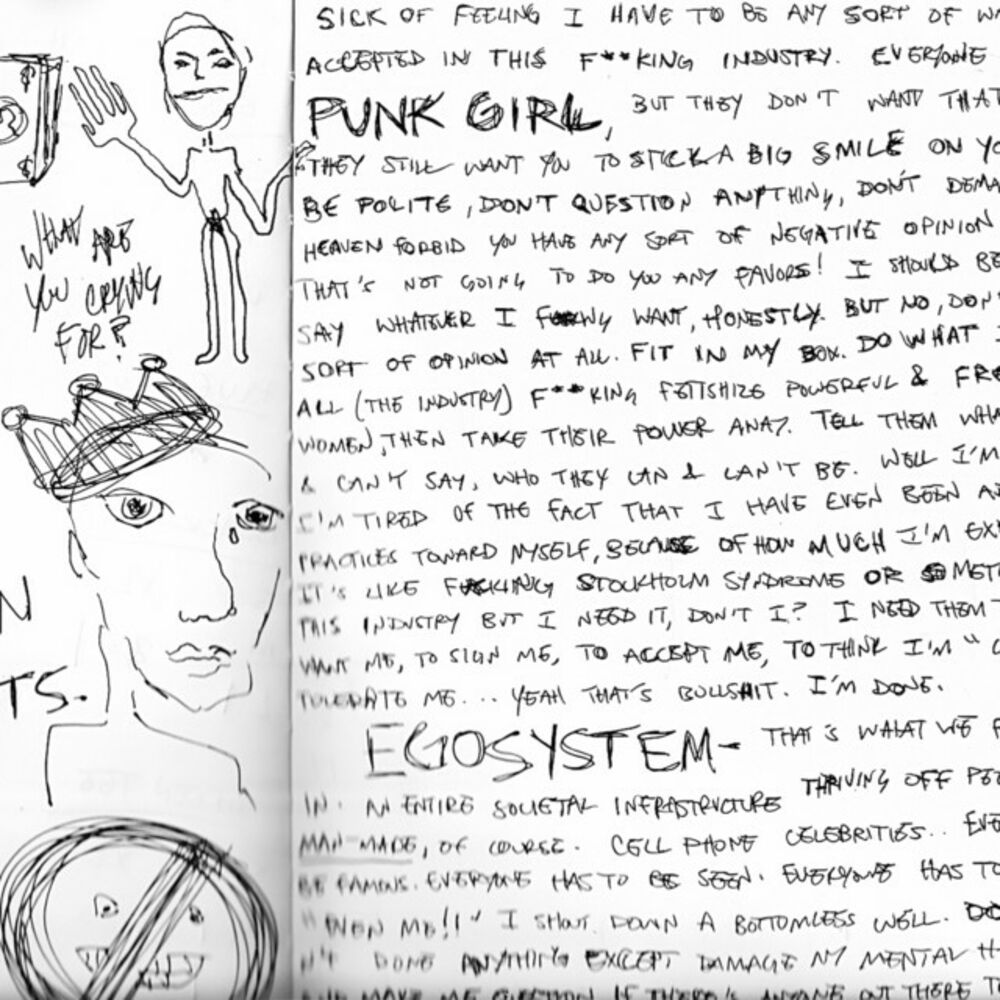 WHAT ARE
YOU CRYING
FOR?
N
TS.
SICK OF FEELING I HAVE TO BE ANY SORT OF
ACCEPTED IN THIS F**KING INDUSTRY. EVERYONE
PUNK GIRL, BUT THEY DON'T WANT THAT
THEY STILL WANT YOU TO STICK A BIG SMILE ON YO
BE POLITE, DON'T QUESTION ANYTHING, DON'T DEMA
HEAVEN FORBID YOU HAVE ANY SORT OF NEGATIVE OPINION
THAT'S NOT GOING TO DO YOU ANY FAVORS! I SHOULD BE
SAY WHATEVER I WANT, HONESTLY. BUT NO, DON'
SORT OF OPINION AT ALL. FIT IN MY BOX. DO WHAT I
ALL (THE INDUSTRY) F**KING FETISHIZE POWERFUL & FRE
WOMEN, THEN TAKE THEIR POWER AWAY. TELL THEM WHA
& CAN'T SAY, WHO THEY CAN & CAN'T BE. WELL I'M
I'M TIRED OF THE FACT THAT I HAVE EVEN BEEN
PRACTICES TOWARD MYSELF, BECAUSE OF HOW MUCH I'M EX
IT'S LIKE FUCKING STOCKHOLM SYNDROME OR SOMETH
THIS INDUSTRY BUT I NEED IT, DON'T I? I NEED THEM T
WANT ME, TO SIGN ME, TO ACCEPT ME, TO THINK I'M "
TOLERATE ME... YEAH THAT'S BULLSHIT. I'M DONE.
EGOSYSTEM- THAT'S WHAT WE
THRIVING OFF PEO
IN. AN ENTIRE SOCIETAL INFRASTRUCTURE
MAN-MADE, OF COURSE. CELL PHONE CELEBRITIES.. EVE
BE FAMOUS. EVERYONE HAS TO BE SEEN. EVERYONE HAS TO
"EVEN ME!!" I SHOUT DOWN A BOTTOMLESS WELL.
N'T DONE ANYTHING EXCEPT DAMAGE MY MENTAL H
AND MAKE ME QUESTION IF THERE'S ANYONE OUT THERE T